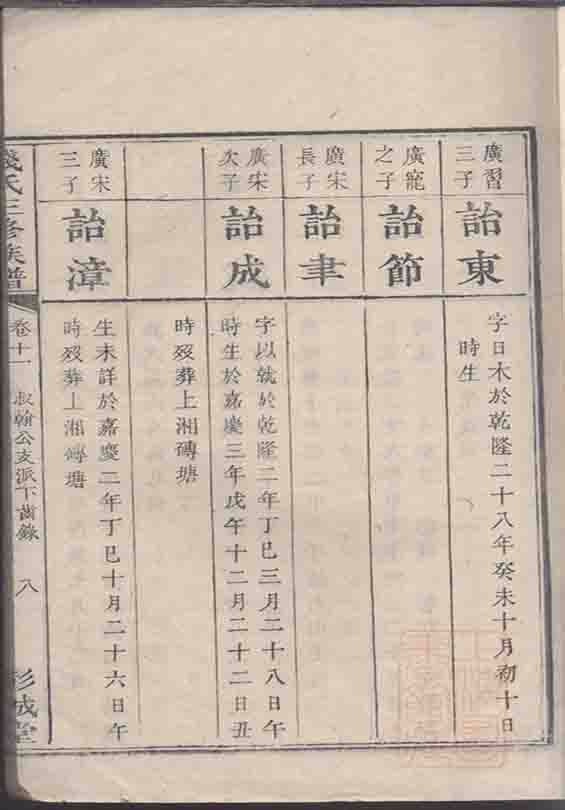 廣習
三子
詒東
字日木於乾隆二十八年癸未十月初十日
時生
廣寵
之子
詒節
廣宋
長子
詒聿
廣宋
次子
詒成
字以就於乾隆二年丁巳三月二十八日午
時生於嘉慶三年戊午十二月二十二日丑
時歿葬上湘磚塘
廣宋
三子
詒漳
生未詳於嘉慶二年丁巳十月二十六日午
時歿葬上湘磚塘
錢氏三修族譜
卷十一
叔翰公支派下齒錄
八
彭城堂